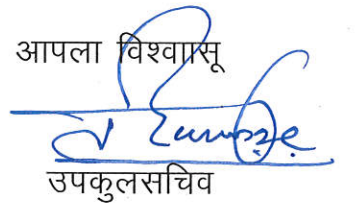 आपला विश्वासू
उपकुलसचिव